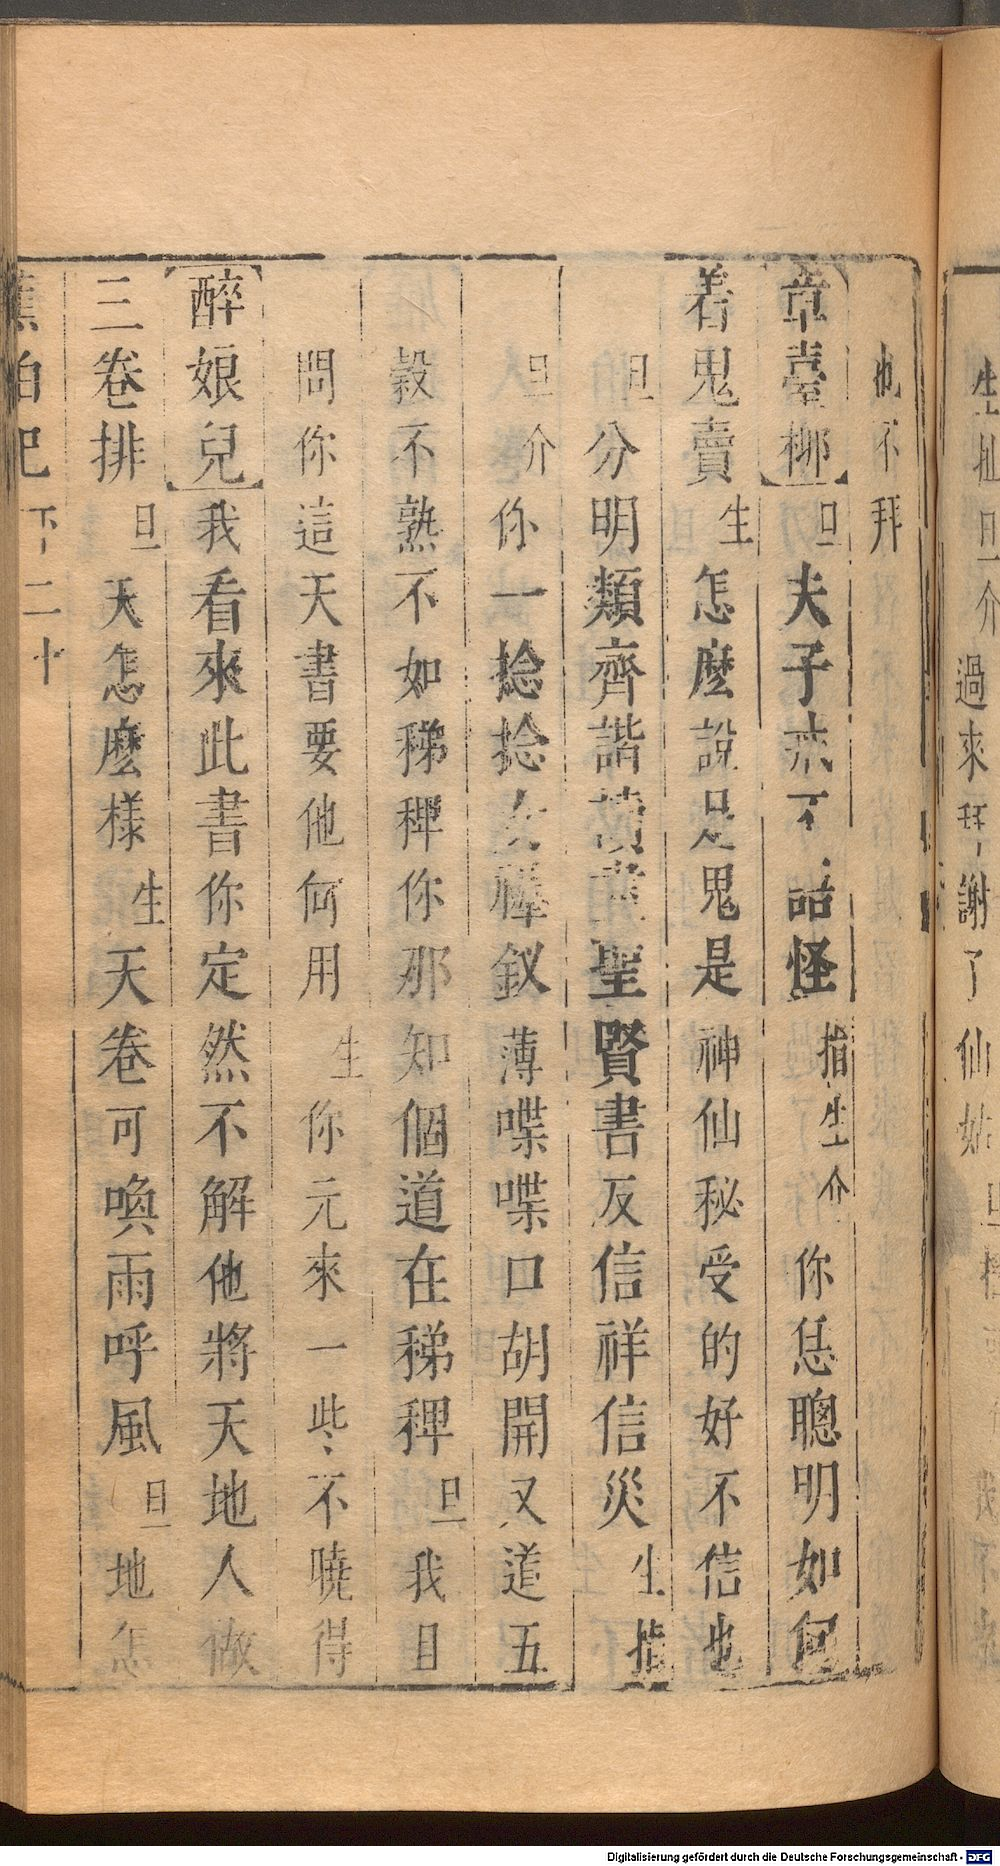 生扯旦介過來拜謝了仙姑
也不拜
【章臺柳】旦夫子來不語怪指生介你恁聰明如何
着鬼賣生怎麼說是鬼是神仙秘受的好不信也
旦分明類齊諧讀聖賢書反信祥信災生
旦介你一捻捻釵薄喋喋口胡開又道五
穀不熟不如稊稗你那知個道在稊稗旦我且
問你這天書要他何用生你元來一些不曉得
【醉娘兒】我看來此書你定然不解他將天地人做
三卷排旦天怎麼樣生天卷可喚雨呼風旦地怎
蕉帕記 下 二十
Digitalisierung gefördert durch die Deutsche Forschungsgemeinschaft - DFG